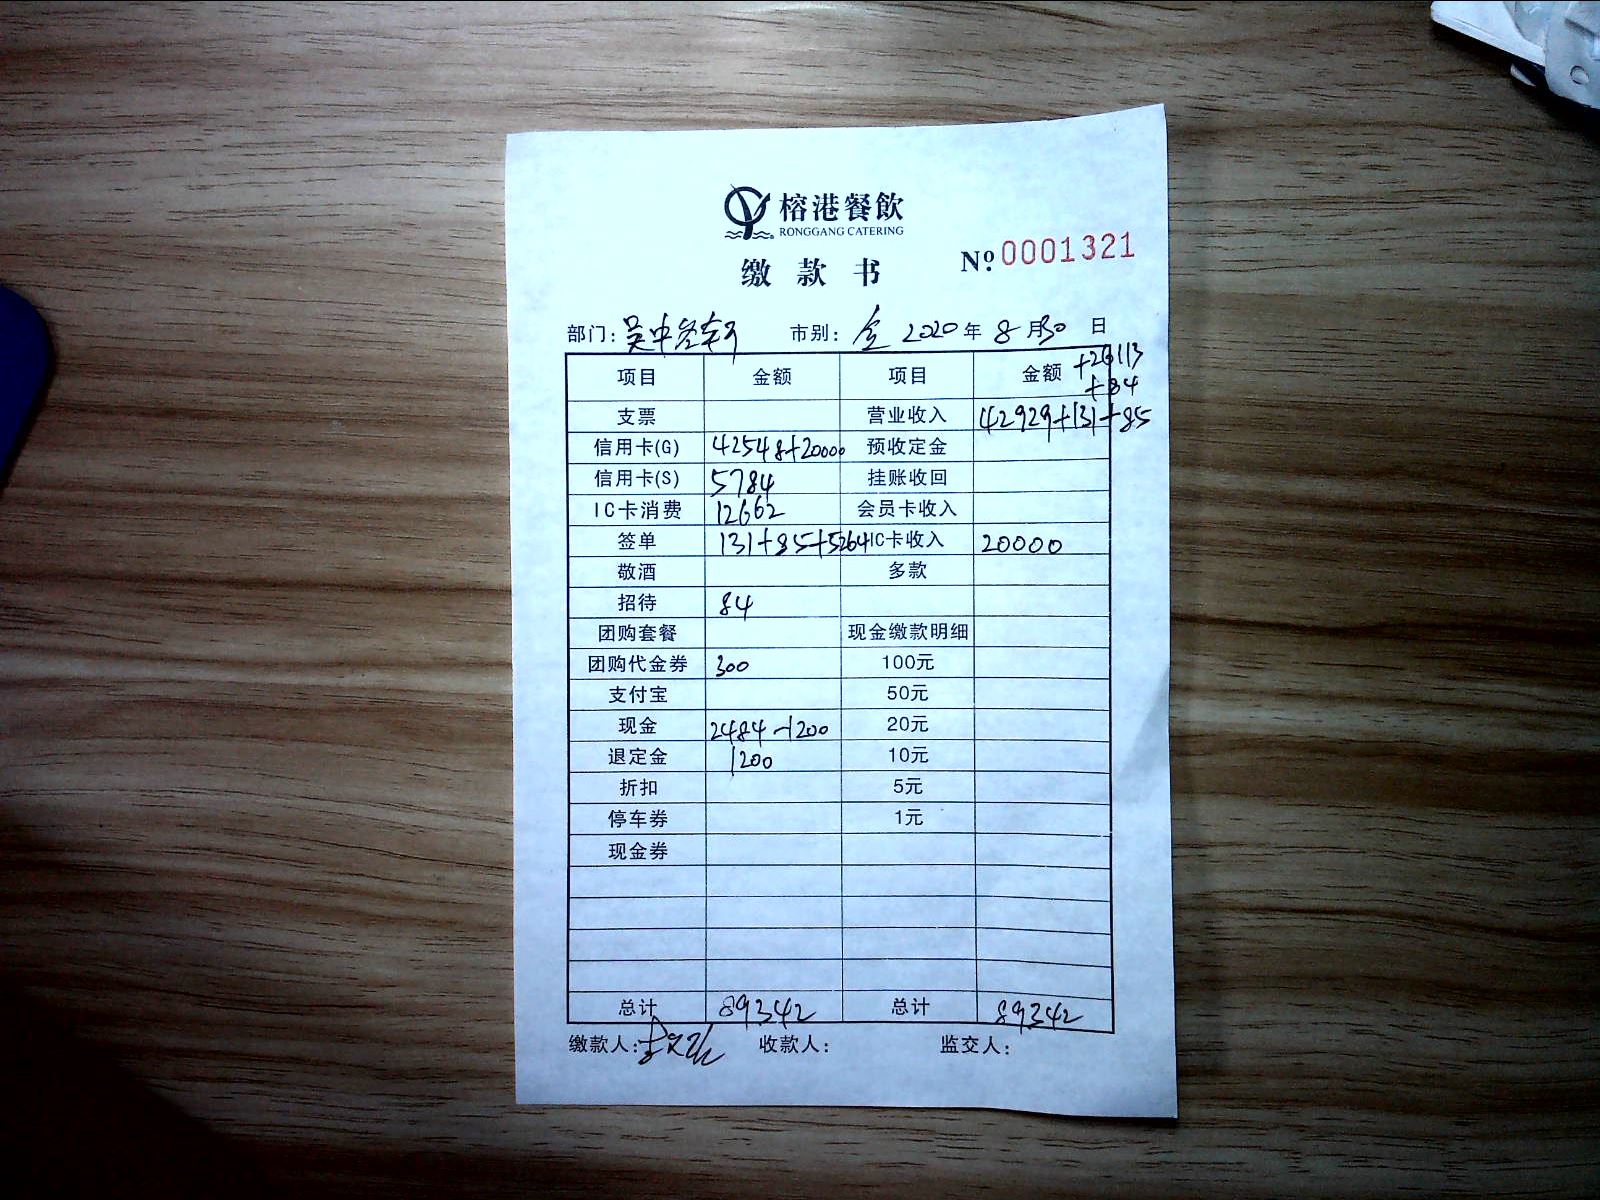 榕港餐飲
RONGGANG CATERING
缴款书 №0001321
部门: 吴中 市别: 全 2020年 8月30日
+26113
项目 金额 项目 金额 +84
支票 营业收入 42929+131+85
信用卡(G) 42548+20000 预收定金
信用卡(S) 5784 挂账收回
IC卡消费 12662 会员卡收入
签单 131+85+5264 IC卡收入 20000
敬酒 多款
招待 84
团购套餐 现金缴款明细
团购代金券 300 100元
支付宝 50元
现金 2484-1200 20元
退定金 1200 10元
折扣 5元
停车券 1元
现金券
总计 89342 总计 89342
缴款人: 收款人: 监交人: